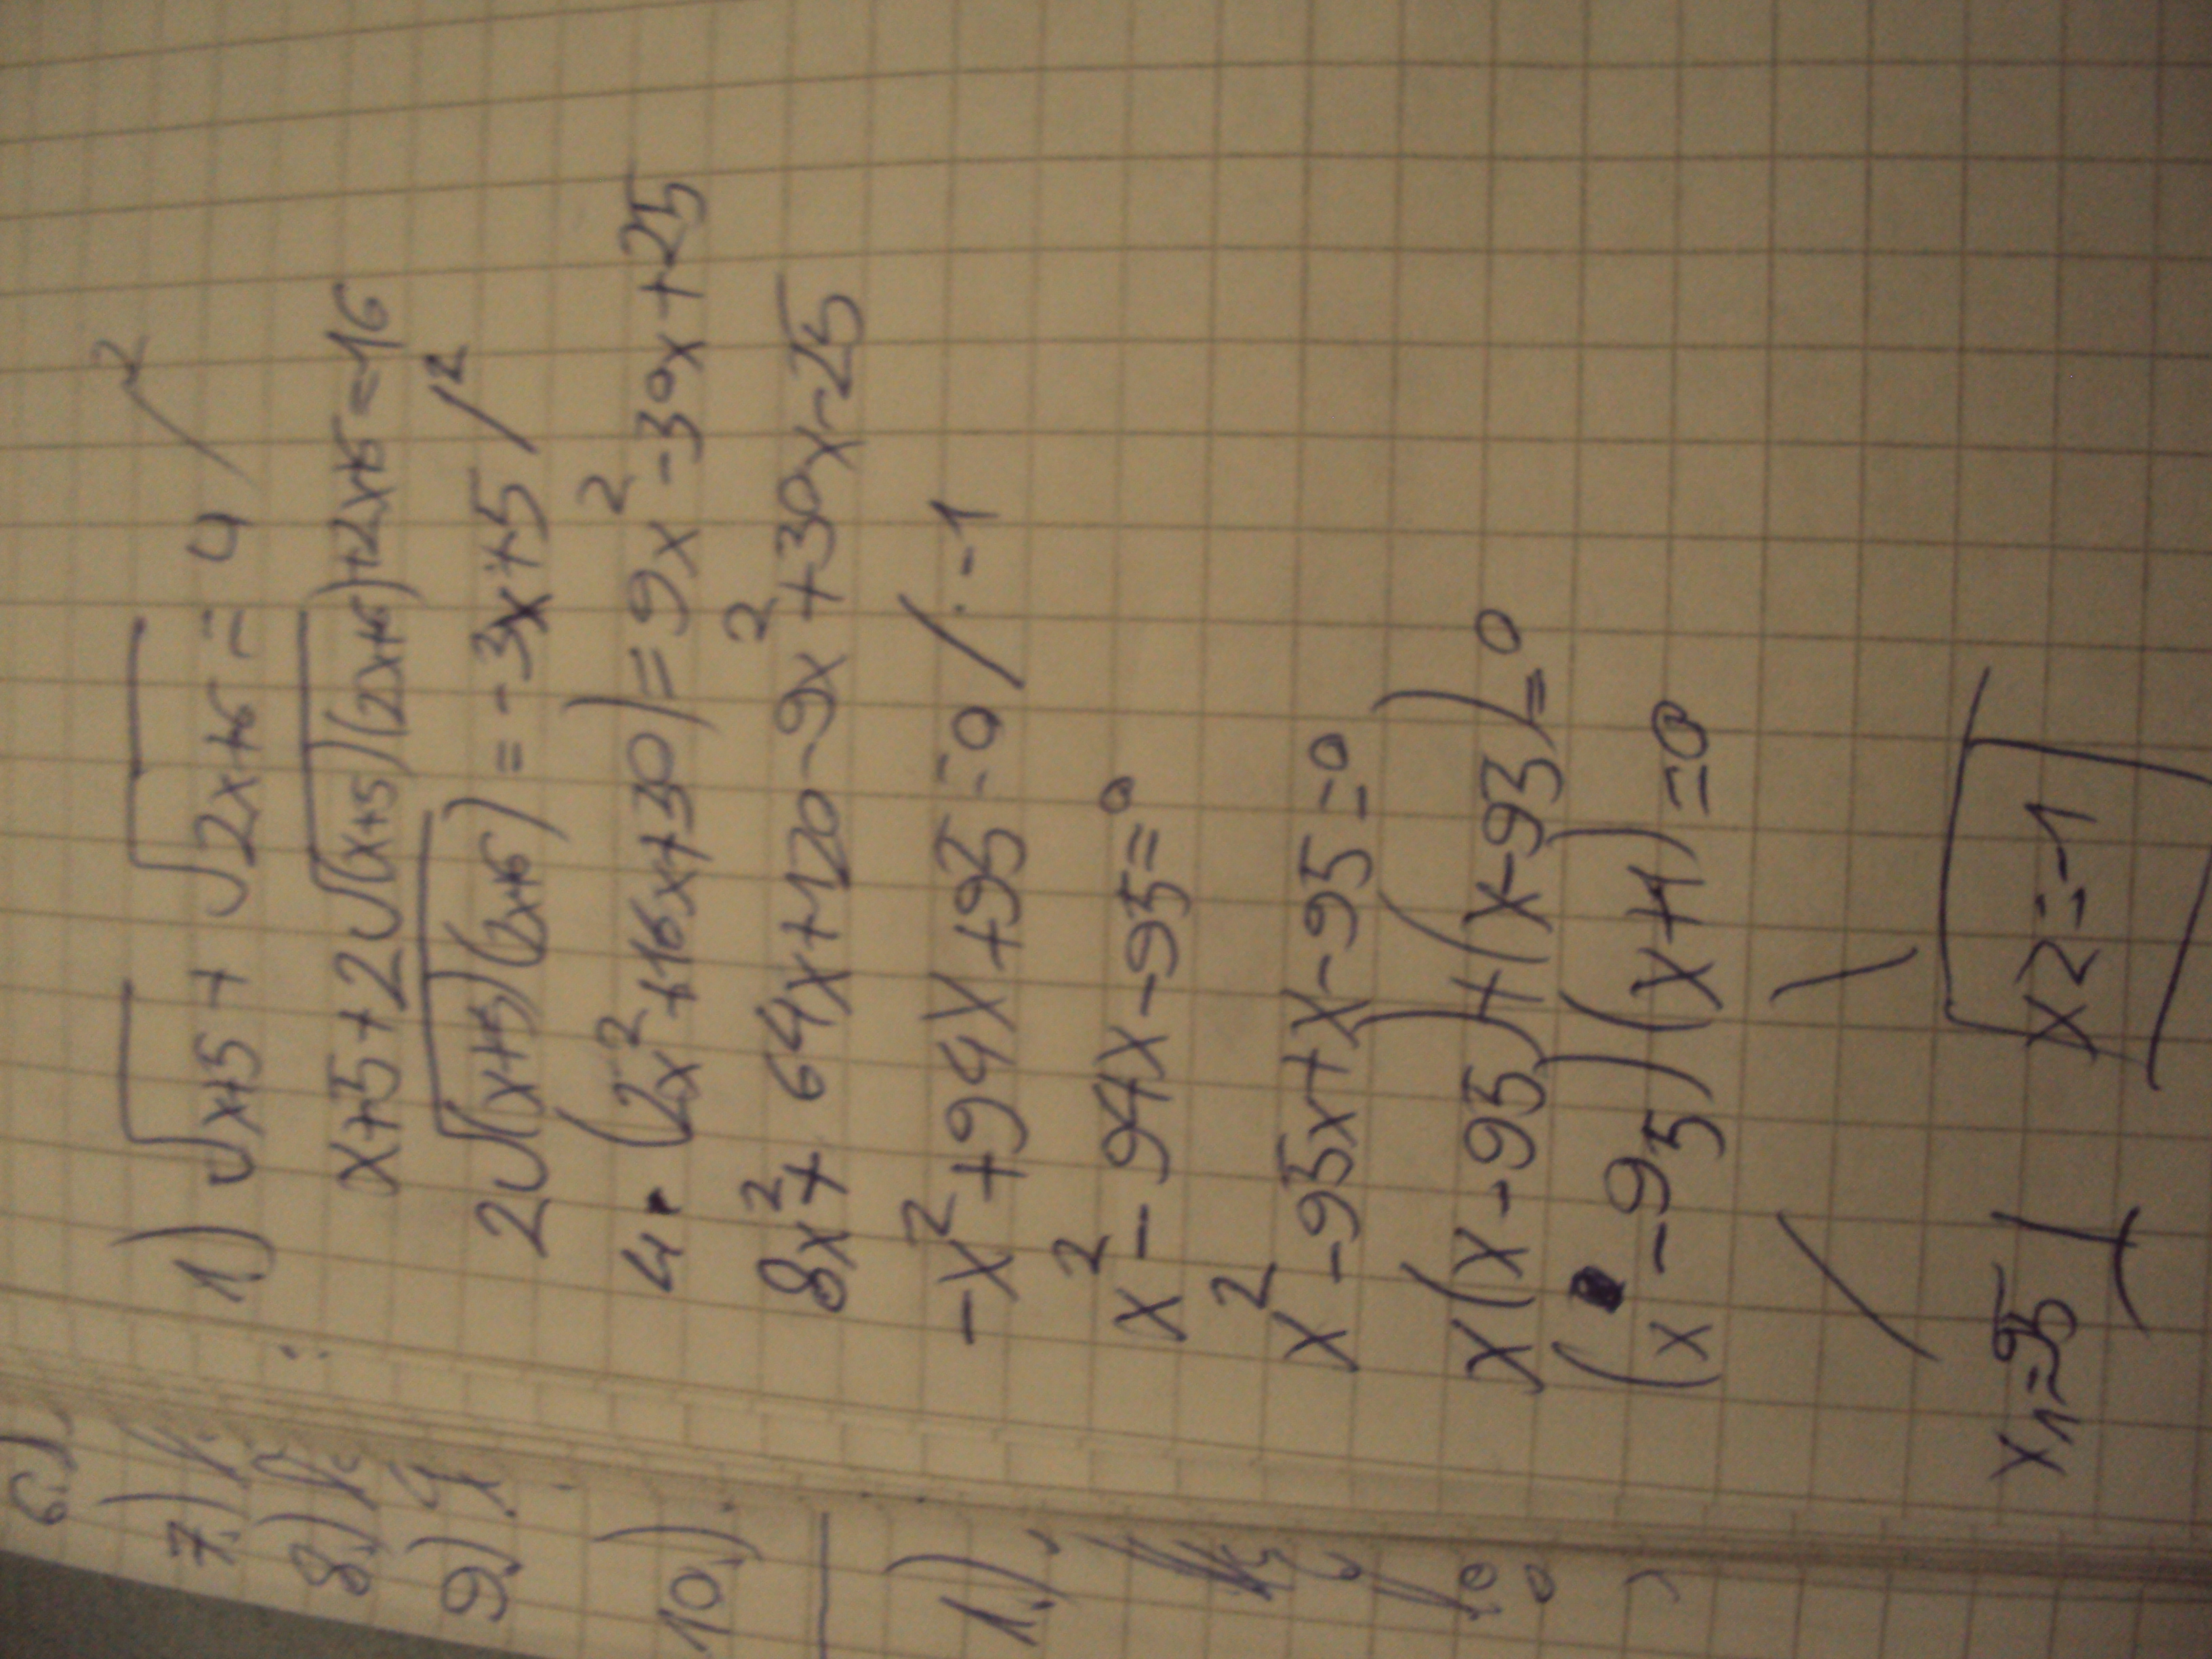 1.) √x+5 + √2x+6 = 4 /²
x+5+2√(x+5)(2x+6)+2x+6=16
2√(x+5)(2x+6) = -3x+5 /²
4·(2x²+16x+30)=9x²-30x+25
8x²+64x+120-9x²+30x-25
-x²+94x+95=0/·-1
x²-94x-95=0
x²-95x+x-95=0
x(x-95)+(x-93)=0
(x-95)(x+1)=0
x1=95
x2=-1
6.)
7.)
8.)
9.)
10.)
1.)